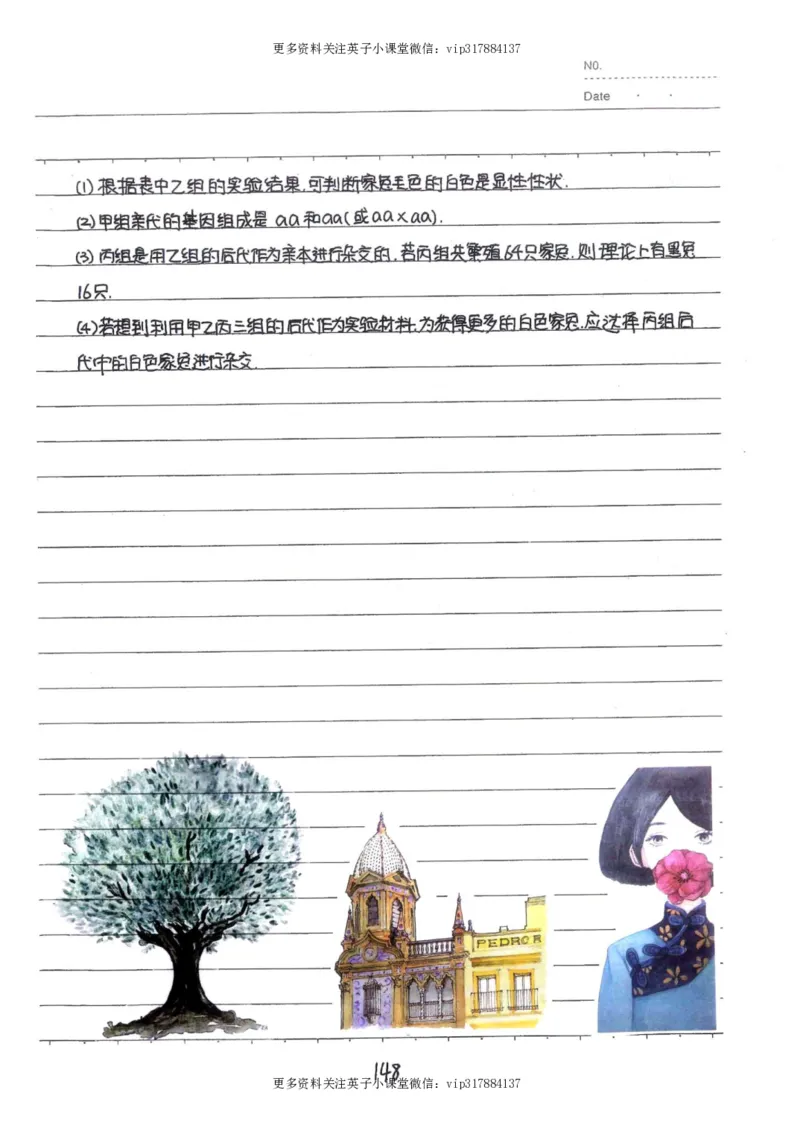 更多资料关注英子小课堂微信：vip317884137
NO.
Date
(1)根据表中乙组的实验结果,可判断家兔毛色的白色是显性性状.
(2)甲组亲代的基因组成是 aa和aa(或aa×aa).
(3)丙组是用乙组的后代作为亲本进行杂交的,若丙组共繁殖64只家兔,则理论上有黑兔
16只.
(4)若想到利用甲乙丙三组的后代作为实验材料,为获得更多的白色家兔,应选择丙组后
代中的白色家兔进行杂交.
PEDRO R
148
更多资料关注英子小课堂微信：vip317884137